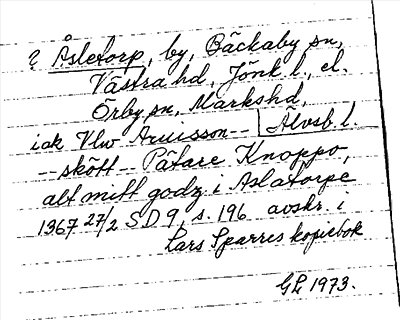 ? Åsletorp, by, Bäckaby sn,
Västra hd, Jönk l., el.
Örby sn, Markshd,
iak Vlw Aruisson -- Älvsb. l.
-- skött -- Pätare Knoppo,
alt mitt godz i Aslatorpe
1367 27/2 SD 9, s. 196 avskr. i
Lars Sparres kopiebok
GL 1973.